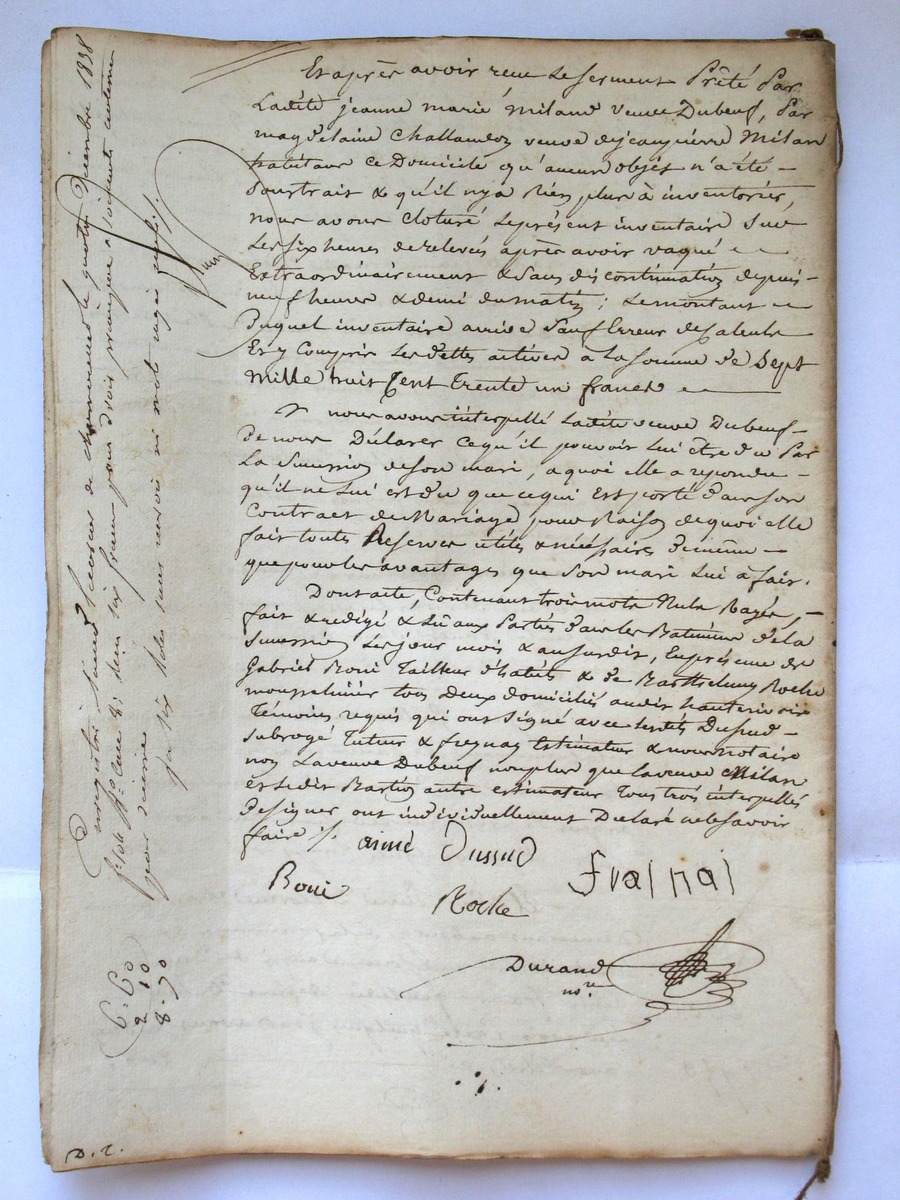 Et après avoir reçu le serment Prêté Par
Ladite jeanne marie Miland veuve Dubeuf, Par
magdelaine Challandon veuve de jean pierre Milan
habitant ce Domicile qu'aucun objet n'a été –
Soustrait & qu'il n'y a Rien plus à inventorier,
nous avons cloturé, Le présent inventaire Sur
Les Six heures de relevée après avoir vaqué
Extraordinairement & Sans discontinuation depuis –
neuf heures & demi du matin ; Le montant
Duquel inventaire arrive Sauf Erreur de Calculs
Et y Compris Les dettes actives à La Somme de Sept
Mille trois Cent Trente un francs
nous avons interpellé Ladite veuve Dubeuf –
De nous Déclarer ce qu'il pouvoit Lui être du Par
La Succession de son mari, a quoi elle a repondu –
qu'il ne Lui est du que ce qui Est porté dans son
Contract de Mariage, pour Raison de quoi elle
fait toutes Reserves utiles & nécessaires de même –
que pour les avantages que Son mari Lui à fait.
Dont acte, Contenant trois mots Nuls Rayés, –
fait & redigé & Lû aux Parties dans les Batimens de la
Succession Les jour mois & an susdit, En présence de
Gabriel Roni Tailleur d'habits & de Barthelemy Roche
tous Deux domiciliés audit hauterivoire
Témoins requis qui ont Signé avec lesdits Dussud –
Subrogé Tuteur & freynay Estimateur & nous notaire
non La veuve Dubeuf non plus que la veuve Milan
et ledit autre estimateur Tous trois interpellés
De signer ont individuellement Déclaré ne le Savoir
faire /.
aimé Dussud
Roni
Roche
fraînaî
Durand
no.re
Enregistré à le quatre Décembre 1838
f.o R.o C.ase 8: deux francs pour droit principal & vingt centimes
pour decime
6 = 60
2 10
8 - 70
D. r.